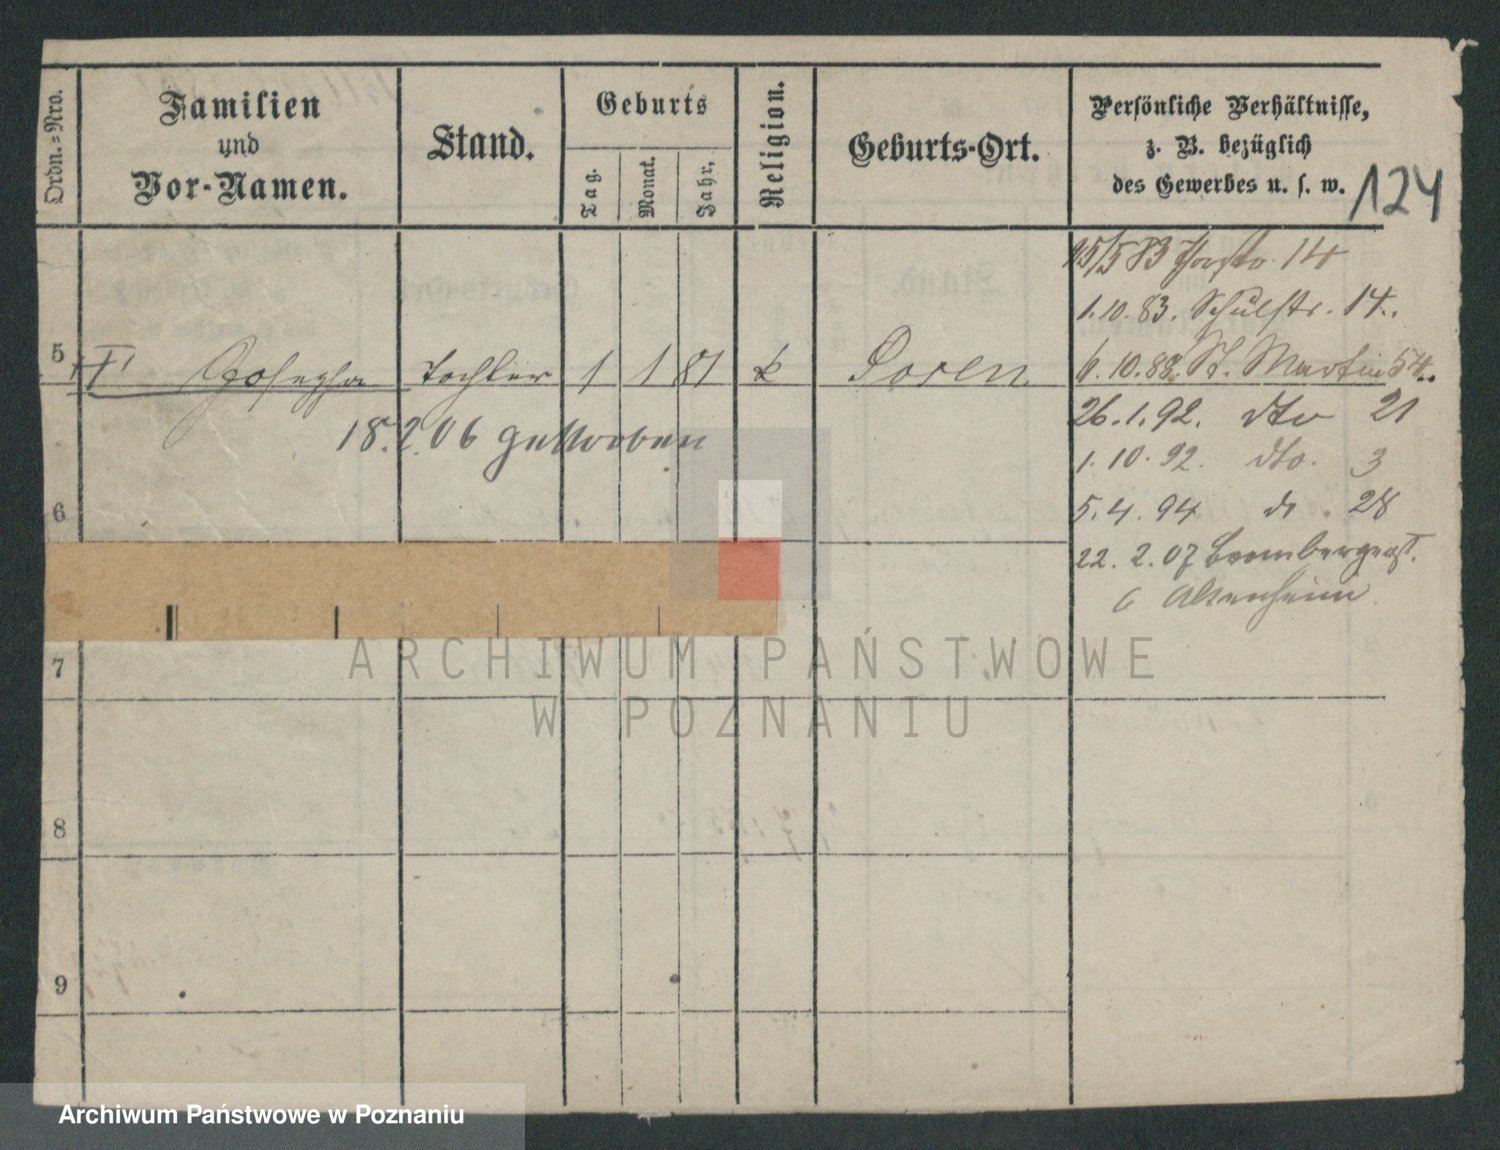 Ordn.=Nro.
Familien
und
Vor-Namen.
Stand.
Geburts
Tag.
Monat.
Jahr.
Religion.
Geburts-Ort.
Persönliche Verhältnisse,
z. B. bezüglich
des Gewerbes u. s. w.
124
15/5 83 14
1. 10. 83. Schulstr. 14.
6. 10. 88. St. Martin 54.
5 Josepha Tochter 1 1 81 k Posen
26. 1. 92. dto 21
18. 2. 06 gestorben
1. 10. 92. dto. 3
5. 4. 94 do. 28
6
22. 2. 07 Brombergerst.
6 Altenheim
7
8
9
ARCHIWUM PAŃSTWOWE
W POZNANIU
Archiwum Państwowe w Poznaniu